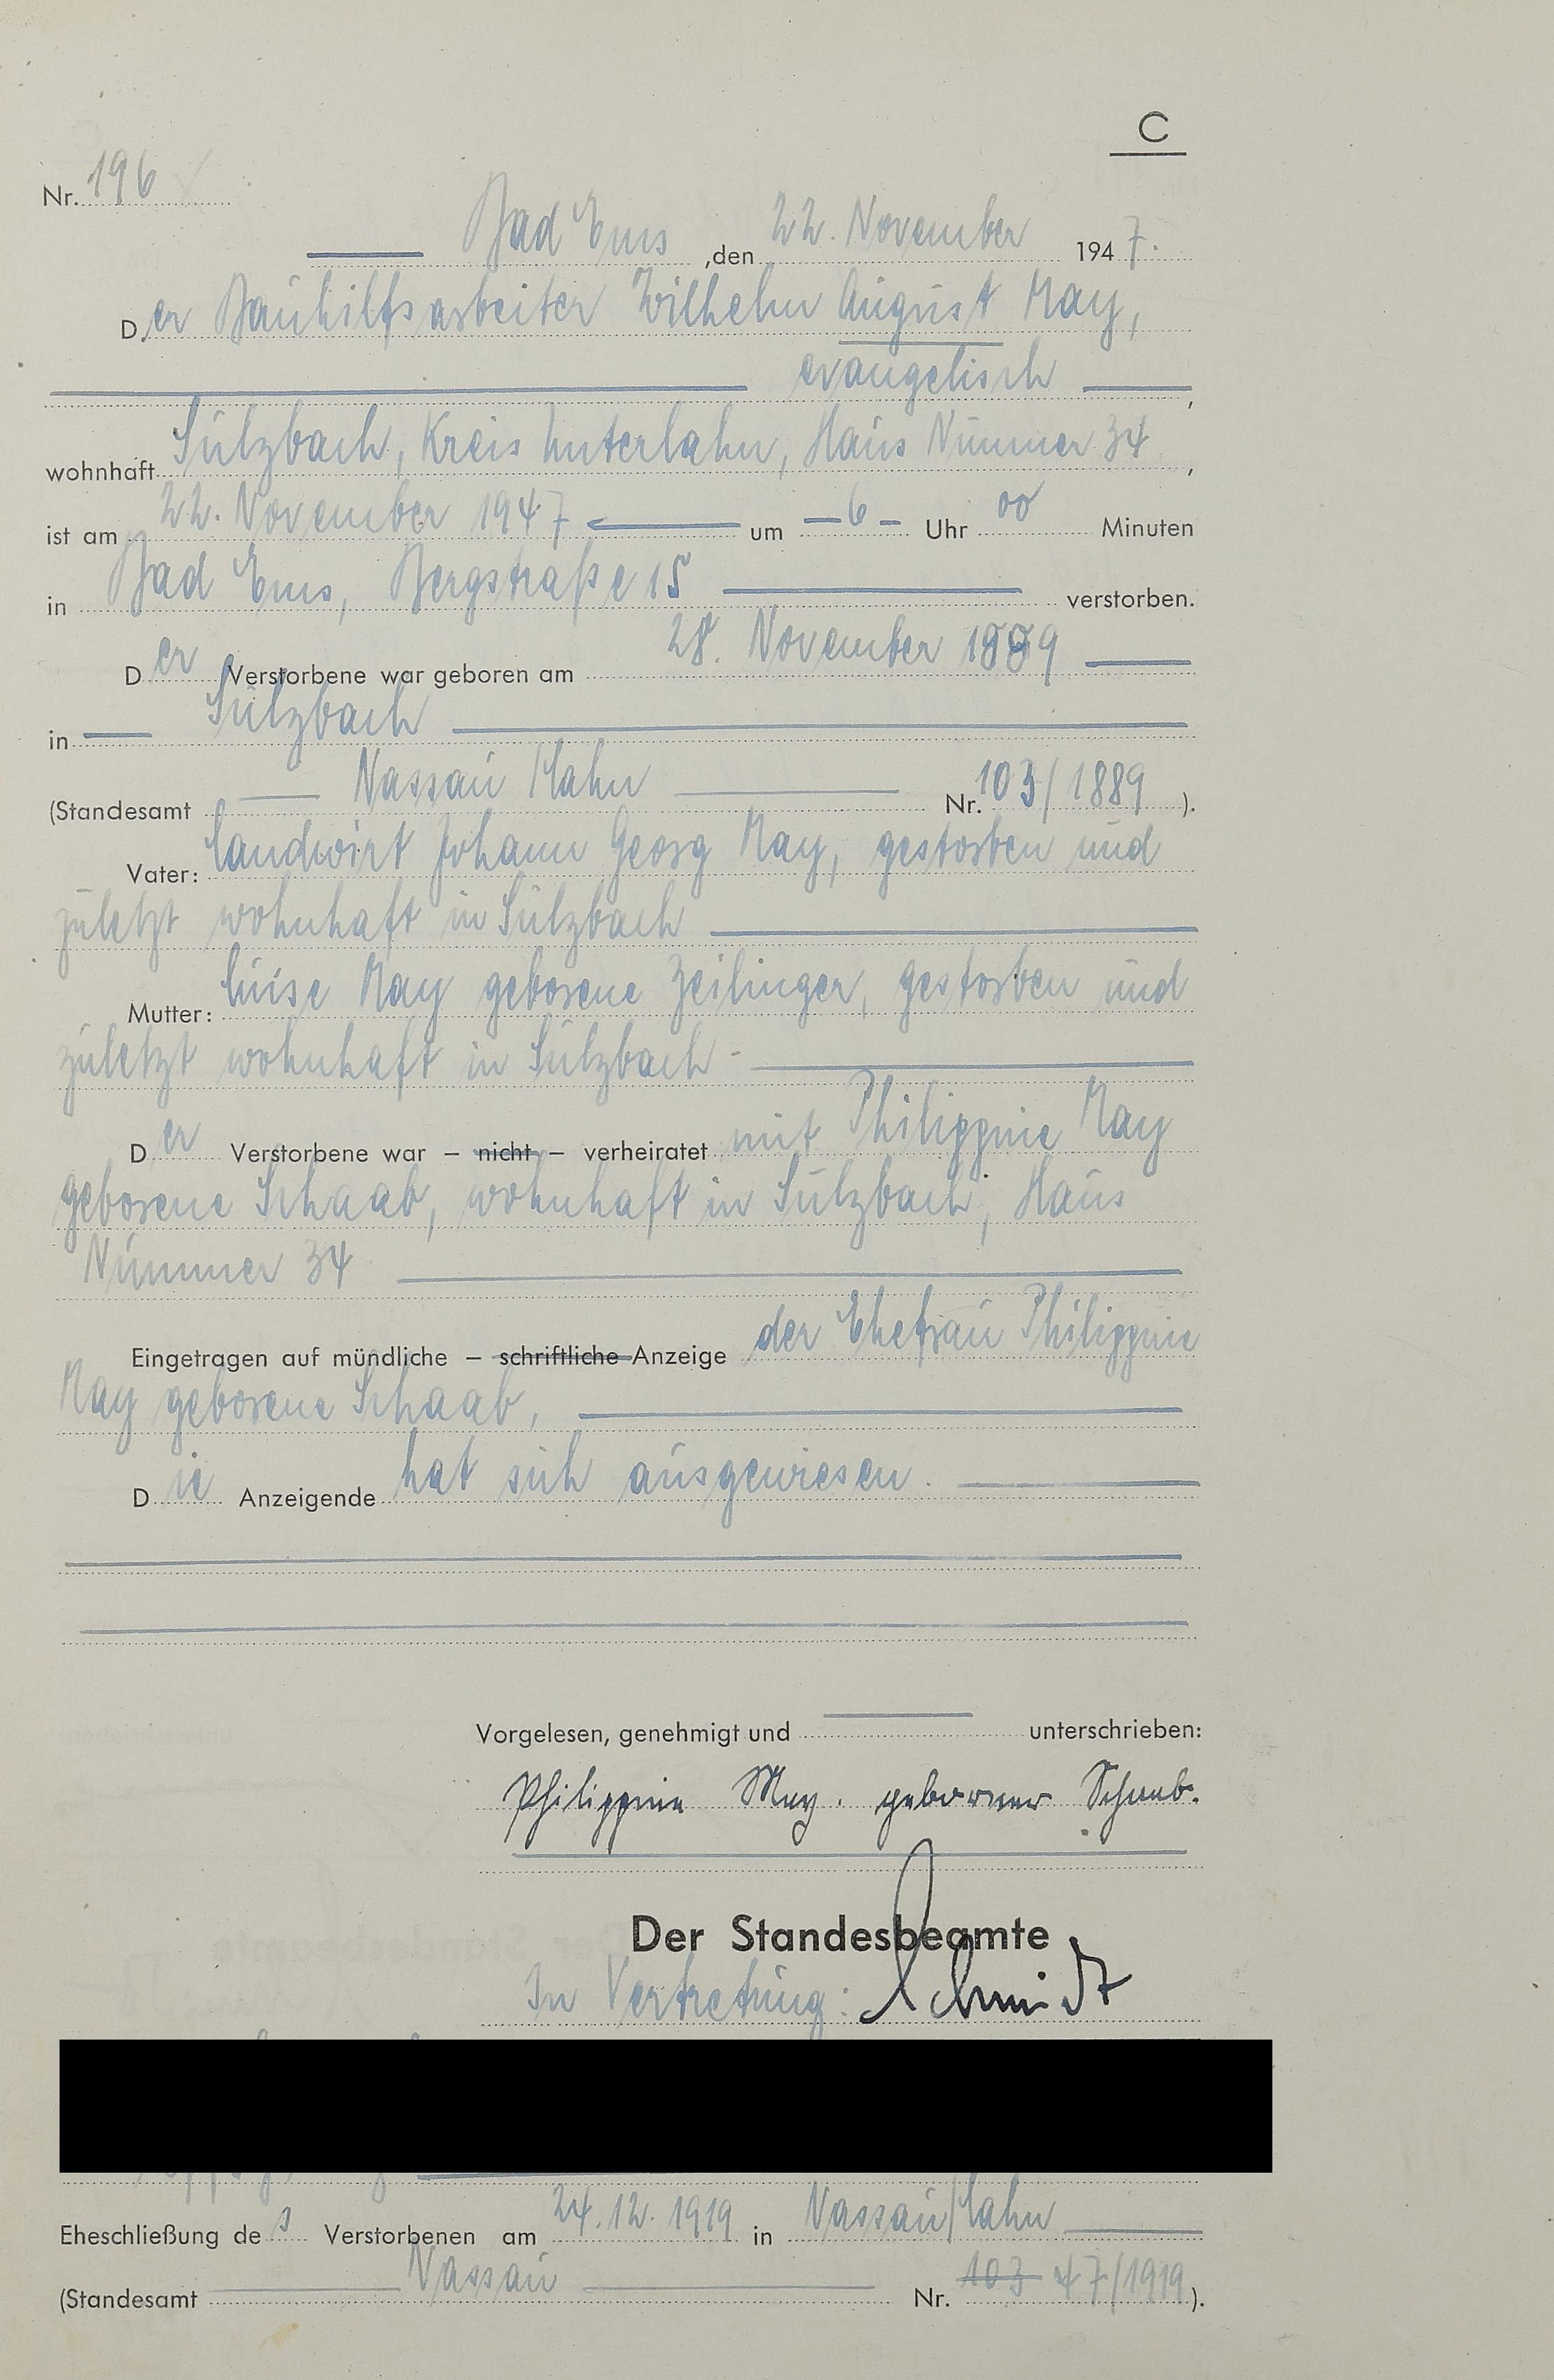 C
Nr. 196
Bad Ems, den 22. November 1947.
Der Bauhilfsarbeiter Wilhelm August May,
evangelisch,
wohnhaft Sulzbach, Kreis Unterlahn, Haus Nummer 34,
ist am 22. November 1947 um 6 Uhr 00 Minuten
in Bad Ems, Bergstraße 15 verstorben.
Der Verstorbene war geboren am 28. November 1889
in Sulzbach
(Standesamt Nassau/Lahn Nr. 103/1889).
Vater: Landwirt Johann Georg May, gestorben und
zuletzt wohnhaft in Sulzbach
Mutter: Luise May geborene Zeilinger, gestorben und
zuletzt wohnhaft in Sulzbach -
Der Verstorbene war – nicht – verheiratet mit Philippine May
geborene Schaab, wohnhaft in Sulzbach, Haus
Nummer 34
Eingetragen auf mündliche – schriftliche Anzeige der Ehefrau Philippine
May geborene Schaab,
Die Anzeigende hat sich ausgewiesen.
Vorgelesen, genehmigt und unterschrieben:
Philippine May. geborener Schaab.
Der Standesbeamte
In Vertretung: Schmidt
Eheschließung des Verstorbenen am 24.12.1919 in Nassau/Lahn
(Standesamt Nassau Nr. 103 47/1919).